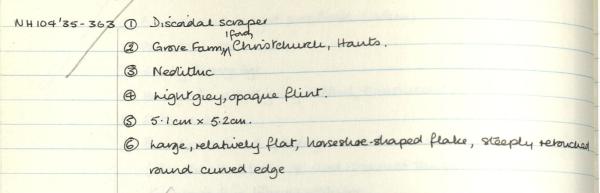 NH104'35-363 ① Discoidal scraper
② Grove Farm, Iford, Christchurch, Hants.
③ Neolithic
④ Light grey, opaque flint.
⑤ 5.1cm × 5.2cm.
⑥ Large, relatively flat, horseshoe-shaped flake, steeply retouched
round curved edge